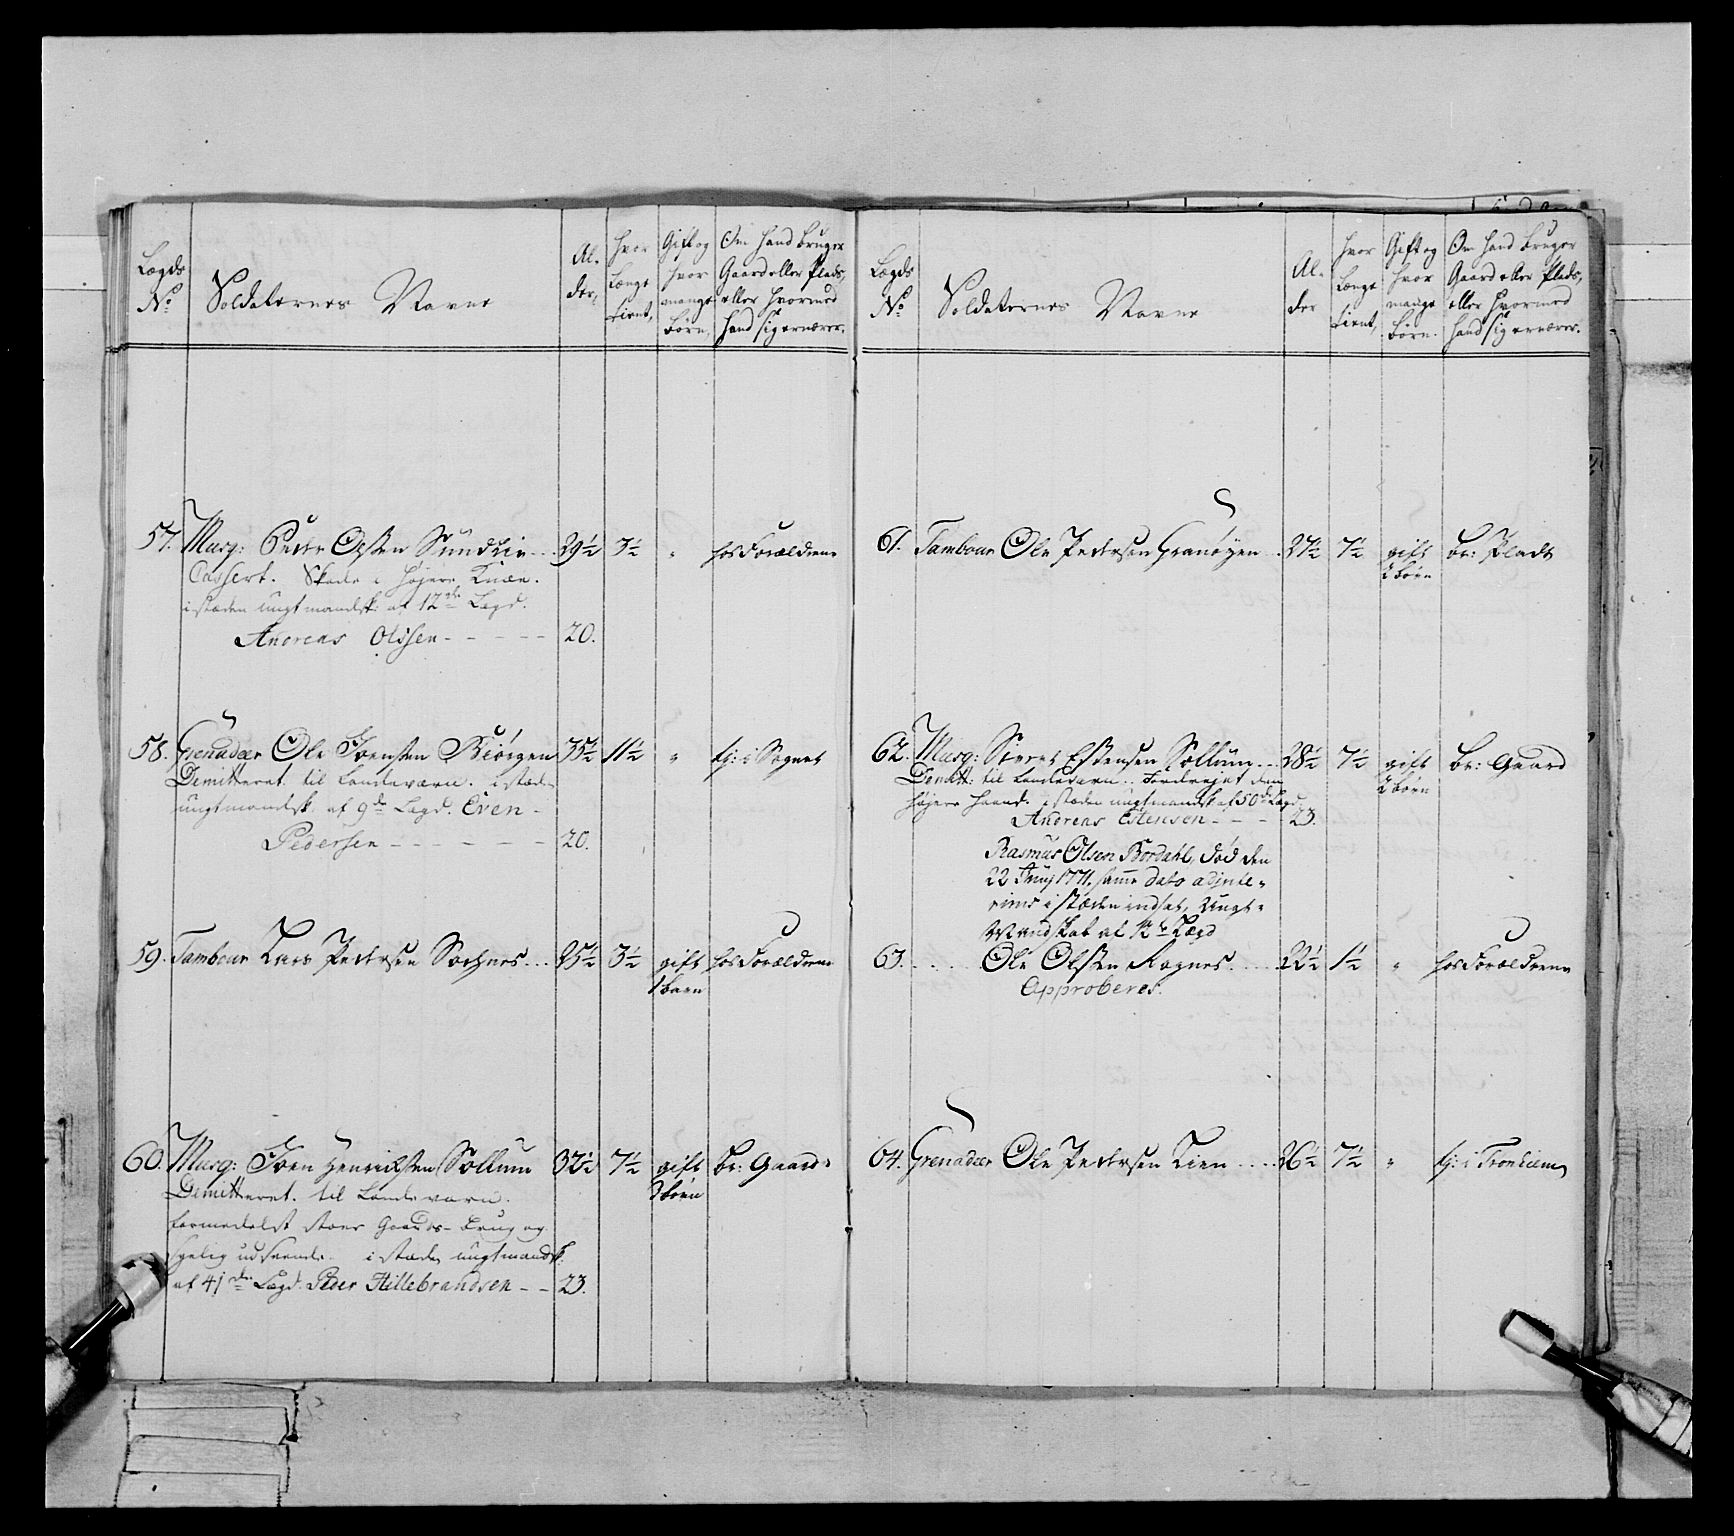 Lægds
No
Soldaternes Navne
Al-
der,
hvor
længe
tient,
Gift og
hvor
mange
børn,
Om hand bruger
Gaard eller Plads,
eller hvormed
hand sig ernærer.
57. Musq: Peder Olsen 29½ 3½ " hos Forældrene
Casseret. Skade i højere Knæe.
i stæden ungt mandsk: af 12de Lægd.
Andreas Olssen - - - - - 20.
58. Grenadeer Ole Joensen Biörgen 35½ 11½ " tj: i Sognet
Demitteret til Landeværn. i stæden
ungtmandsk. af 9de Lægd. Even -
Pedersen - - - - - - 20.
59. Tambour Lars Pedersen Sochnes... 25½ 3½ gift hos Forældrene
1 barn
60. Musq: Joen Henrichsen Sollum 32½ 7½ gift br: Gaard
3 börn
Demitteret. til Landeværn.
formedelst stoer Gaards-brug og
sygelig udseende. i stæden ungtmandsk:
af 41de Lægd. Peder Hillebrandsen - - 23.
Lægds
No
Soldaternes Navne
Al-
der
hvor
længe
tient,
Gift og
hvor
mange
börn.
Om hand bruger
Gaard eller Plads,
eller hvormed
hand sig ernærer.
61. Tambour Ole Pedersen Granöyen .. 27½ 7½ gift br: Plads
2 börn
62. Musq: Siver Estensen Sollum... 28½ 7½ gift br: Gaard
2 börn
Demitt: til Landeværn. fordrejet den
højere haand. i stæden ungtmandsk af 50de Lægd
Andreas Estensen - - - 23.
Rasmus Olsen Bordahl, död den
22 Junj 1771. samme dato adinte-
rims i stæden indsat, Ungt-
Mandskab af 12te Lægd
63. . . . . Ole Olsen Rognes. . . . 22½ 1½ " hos Forældrene
Approberes.
64. Grenadeer Ole Pedersen Lien .... 26½ 7½ " tj: i Tronhiem